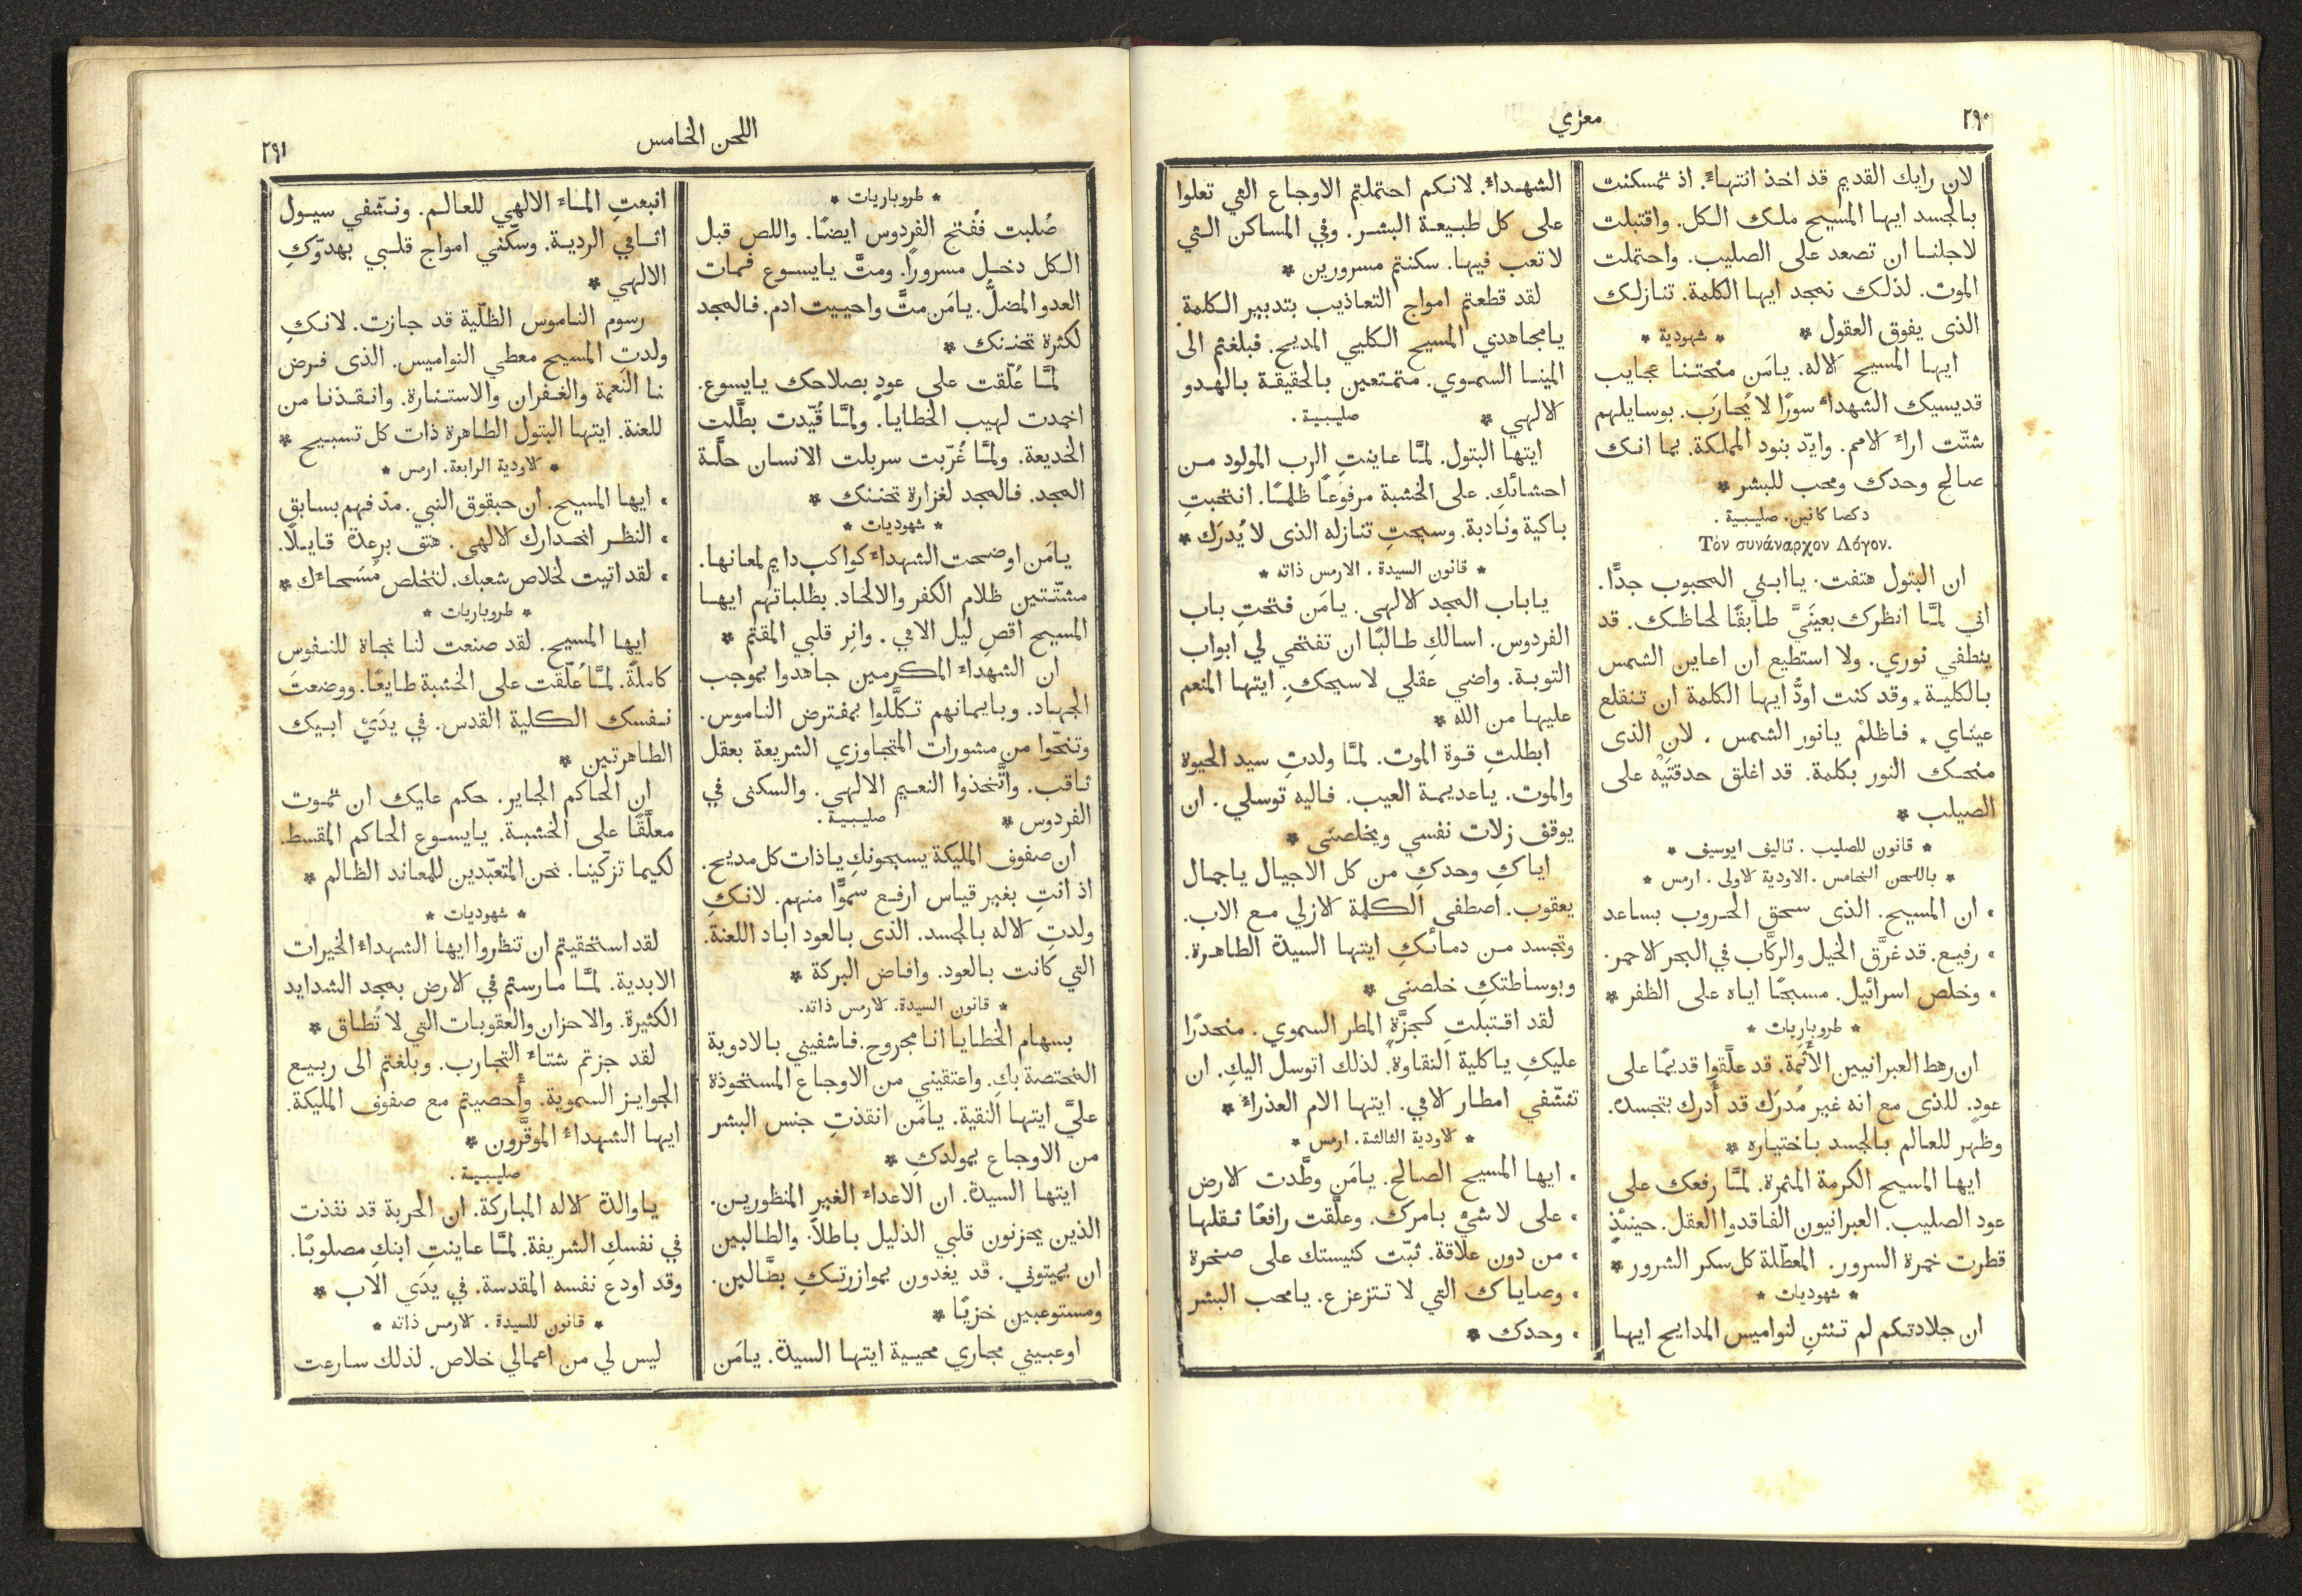 ٢٩٠
معزي
لان رايك القديم قد اخذ انتهاءً. اذ تمسكنت
بالجسد ايها المسيح ملك الكل. واقتبلت
لاجلنا ان تصعد على الصليب. واحتملت
الموت. لذلك نمجد ايها الكلمة. تنازلك
الذى يفوق العقول * * شهودية *
ايها المسيح الاله. يامَن منحتنا عجايب
قديسيك الشهداء سورًا لا يُحارَب. بوسايلهم
شتّت اراء الامم. وايّد بنود المملكة. بما انك
صالح وحدك ومحب للبشر *
دكصا كانين. صليبية.
Τὸν συνάναρχον Λόγον.
ان البتول هتفت. ياابني المحبوب جدًّا.
اني لمَّا انظرك بعينَيَّ طابقًا لحاظك. قد
ينطفي نوري. ولا استطيع ان اعاين الشمس
بالكلية * وقد كنت اودُّ ايها الكلمة ان تنقلع
عيناي * فاظلمْ يانور الشمس. لان الذى
منحك النور بكلمة. قد اغلق حدقتَيْه على
الصيلب *
* قانون للصليب. تاليف ايوسيف *
* باللحن الخامس. الاودية الاولى. ارمس *
، ان المسيح. الذى سحق الحروب بساعد
، رفيع. قد غرَّق الخيل والركَّاب في البحر الاحمر.
، وخلص اسرائيل. مسبحًا اياه على الظفر *
* طروباريات *
ان رهط العبرانيين الأَثَمة. قد علَّقوا قديمًا على
عودٍ. للذى مع انه غير مُدرَك قد أُدرك بتجسده.
وظهر للعالم بالجسد باختياره *
ايها المسيح الكرمة المثمرة. لمَّا رفعك على
عود الصليب. العبرانيون الفاقدوا العقل. حينئذٍ
قطرت خمرة السرور. المعطّلة كل سكر الشرور *
* شهوديات *
ان جلادتكم لم تنثنِ لنواميس المدايح ايها
الشهداء. لانكم احتملتم الاوجاع التي تعلوا
على كل طبيعة البشر. وفي المساكن التي
لا تعب فيها. سكنتم مسرورين *
لقد قطعتم امواج التعاذيب بتدبير الكلمة.
يامجاهدي المسيح الكليي المديح. فبلغتم الى
المينا السموي. متمتعين بالحقيقة بالهدو
الالهي * صليبية.
ايتها البتول. لمَّا عاينتِ الرب المولود من
احشائكِ. على الخشبة مرفوعًا ظلمًا. انتحبتِ
باكية ونادبة. وسبحتِ تنازله الذى لا يُدرَك *
* قانون السيدة. الارمس ذاته *
ياباب المجد الالهي. يامَن فتحتِ باب
الفردوس. اسالكِ طالبًا ان تفتحي لي ابواب
التوبة. واضي عقلي لاسبحكِ. ايتها المنعم
عليها من الله *
ابطلتِ قوة الموت. لمَّا ولدتِ سيد الحيوة
والموت. ياعديمة العيب. فاليه توسلي. ان
يوقف زلات نفسي ويخلصنى *
اياكِ وحدكِ من كل الاجيال ياجمال
يعقوب. اصطفى الكلمة الازلي مع الاب.
وتجسد من دمائكِ ايتها السيدة الطاهرة.
وبوساطتكِ خلصني *
لقد اقتبلتِ كجزَّةٍ المطر السموي. منحدرًا
عليكِ ياكلية النقاوة. لذلك اتوسل اليكِ. ان
تنشّفي امطار الامي. ايتها الام العذراء *
* الاودية الثالثة. ارمس *
، ايها المسيح الصالح. يامَن وطَّدت الارض
، على لا شيْ بامرك. وعلَّقت رافعًا ثقلها
، من دون علاقة. ثبّت كنيستك على صخرة
، وصاياك التي لا تتزعزع. يامحب البشر
، وحدك *
اللحن الخامس
٢٩١
* طروباريات *
صُلبت ففُتح الفردوس ايضًا. واللص قبل
الكل دخل مسرورًا. ومتَّ يايسوع فمات
العدو المضلُّ. يامَن متَّ واحييت ادم. فالمجد
لكثرة تحننك *
لمَّا عُلّقت على عودٍ بصلاحك يايسوع.
اخمدت لهيب الخطايا. ولمَّا قُيّدت بطَّلت
الخديعة. ولمَّا عُرّيت سربلت الانسان حلَّة
المجد. فالمجد لغزارة تحننك *
* شهوديات *
يامَن اوضحت الشهداء كواكب دايم لمعانها.
مشتّتين ظلام الكفر والالحاد. بطلباتهم ايها
المسيح اقصِ ليل الامي. وانِر قلبي المقتم *
ان الشهداء المكرمين جاهدوا بموجب
الجهاد. وبايمانهم تكلَّلوا بمفترض الناموس.
وتنحّوا من مشورات المتجاوزي الشريعة بعقل
ثاقب. واتَّخذوا النعيم الالهي. والسكنى في
الفردوس * صليبية.
ان صفوف المليكة يسبحونكِ ياذات كل مديح.
اذ انتِ بغير قياس ارفع سموًّا منهم. لانكِ
ولدتِ الاله بالجسد. الذى بالعود اباد اللعنة.
التي كانت بالعود. وافاض البركة *
* قانون السيدة. الارمس ذاته.
بسهام الخطايا انا مجروح. فاشفيني بالادوية
المختصة بكِ. واعتقيني من الاوجاع المستحوذة
عليَّ ايتها النقية. يامَن انقذتِ جنس البشر
من الاوجاع بمولدكِ *
ايتها السيدة. ان الاعداء الغير المنظورين.
الذين يحزنون قلبي الذليل باطلاً. والطالبين
ان يميتوني. قد يغدون بموازرتكِ بطَّالين.
ومستوعبين خزيًا *
اوعبيني مجاري محيية ايتها السيدة. يامَن
انبعتِ الماء الالهي للعالم. ونشّفي سيول
اثامي الردية. وسكّني امواج قلبي بهدوّكِ
الالهي *
رسوم الناموس الظلّية قد جازت. لانكِ
ولدتِ المسيح معطي النواميس. الذى فرض
نا النعمة والغفران والاستنارة. وانقذنا من
للعنة. ايتها البتول الطاهرة ذات كل تسبيح *
* الاودية الرابعة. ارمس *
، ايها المسيح. ان حبقوق النبي. مذ فهم بسابق
، النظر انحدارك الالهي. هتف برعدة قايلاً.
، لقد اتيت لخلاص شعبك. لتخلص مُسَحاءَك *
* طروباريات *
ايها المسيح. لقد صنعت لنا نجاة للنفوس
كاملةً. لمَّا عُلّقت على الخشبة طايعًا. ووضعتَ
نفسك الكلية القدس. في يدَي ابيك
الطاهرتين *
ان الحاكم الجاير. حكم عليك ان تموت
معلَّقًا على الخشبة. يايسوع الحاكم المقسط.
لكيما تزكّينا. نحن المتعبّدين للمعاند الظالم *
* شهوديات *
لقد استحقيتم ان تنظروا ايها الشهداء الخيرات
الابدية. لمَّا مارستم في الارض بمجد الشدايد
الكثيرة. والاحزان والعقوبات التي لا تُطاق *
لقد جزتم شتاء التجارب. وبلغتم الى ربيع
الجوايز السموية. وأُحصيتم مع صفوف المليكة.
ايها الشهداء الموقَّرون *
صليبية.
ياوالدة الاله المباركة. ان الحربة قد نفذت
في نفسكِ الشريفة. لمَّا عاينتِ ابنكِ مصلوبًا.
وقد اودع نفسه المقدسة. في يدَي الاب *
* قانون للسيدة. الارمس ذاته *
ليس لي من اعمالي خلاص. لذلك سارعت